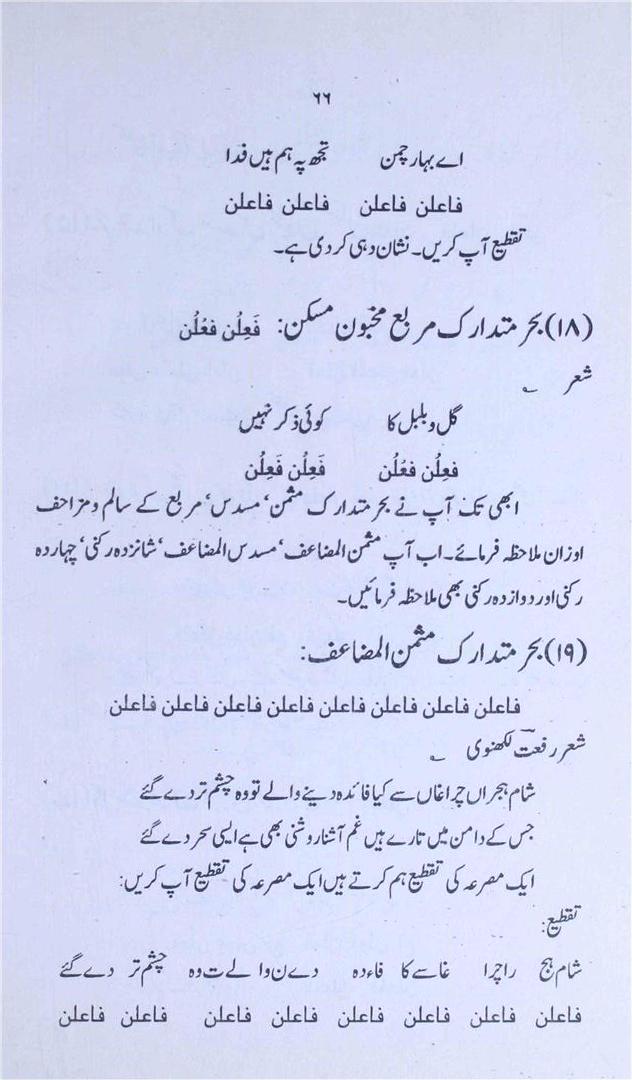 ۶۶
اے بہار چمن تجھ پہ ہم ہیں فدا
فاعلن فاعلن فاعلن فاعلن
تقطیع آپ کریں۔ نشان دہی کر دی ہے۔
(۱۸) بحر متدارک مربع مخبون مسکن: فَعِلُن فعْلُن
شعر
گل و بلبل کا کوئی ذکر نہیں
فَعِلُن فعْلُن فَعِلُن فَعِلُن
ابھی تک آپ نے بحر متدارک مثمن‘ مسدس‘ مربع کے سالم و مزاحف
اوزان ملاحظہ فرمائے۔ اب آپ مثمن المضاعف‘ مسدس المضاعف‘ شانزدہ رکنی‘ چہار دہ
رکنی اور دوازدہ رکنی بھی ملاحظہ فرمائیں۔
(۱۹) بحر متدارک مثمن المضاعف:
فاعلن فاعلن فاعلن فاعلن فاعلن فاعلن فاعلن فاعلن
شعر رفعت لکھنوی
شام ہجراں چراغاں سے کیا فائدہ دینے والے تو وہ چشم تر دے گئے
جس کے دامن میں تارے ہیں غم آشنا روشنی بھی ہے ایسی سحر دے گئے
ایک مصرعہ کی تقطیع ہم کرتے ہیں ایک مصرعہ کی تقطیع آپ کریں:
تقطیع:
شام ہج راچرا غاسے کا فاءدہ دے ن وا لے ت وہ چشم تر دے گئے
فاعلن فاعلن فاعلن فاعلن فاعلن فاعلن فاعلن فاعلن